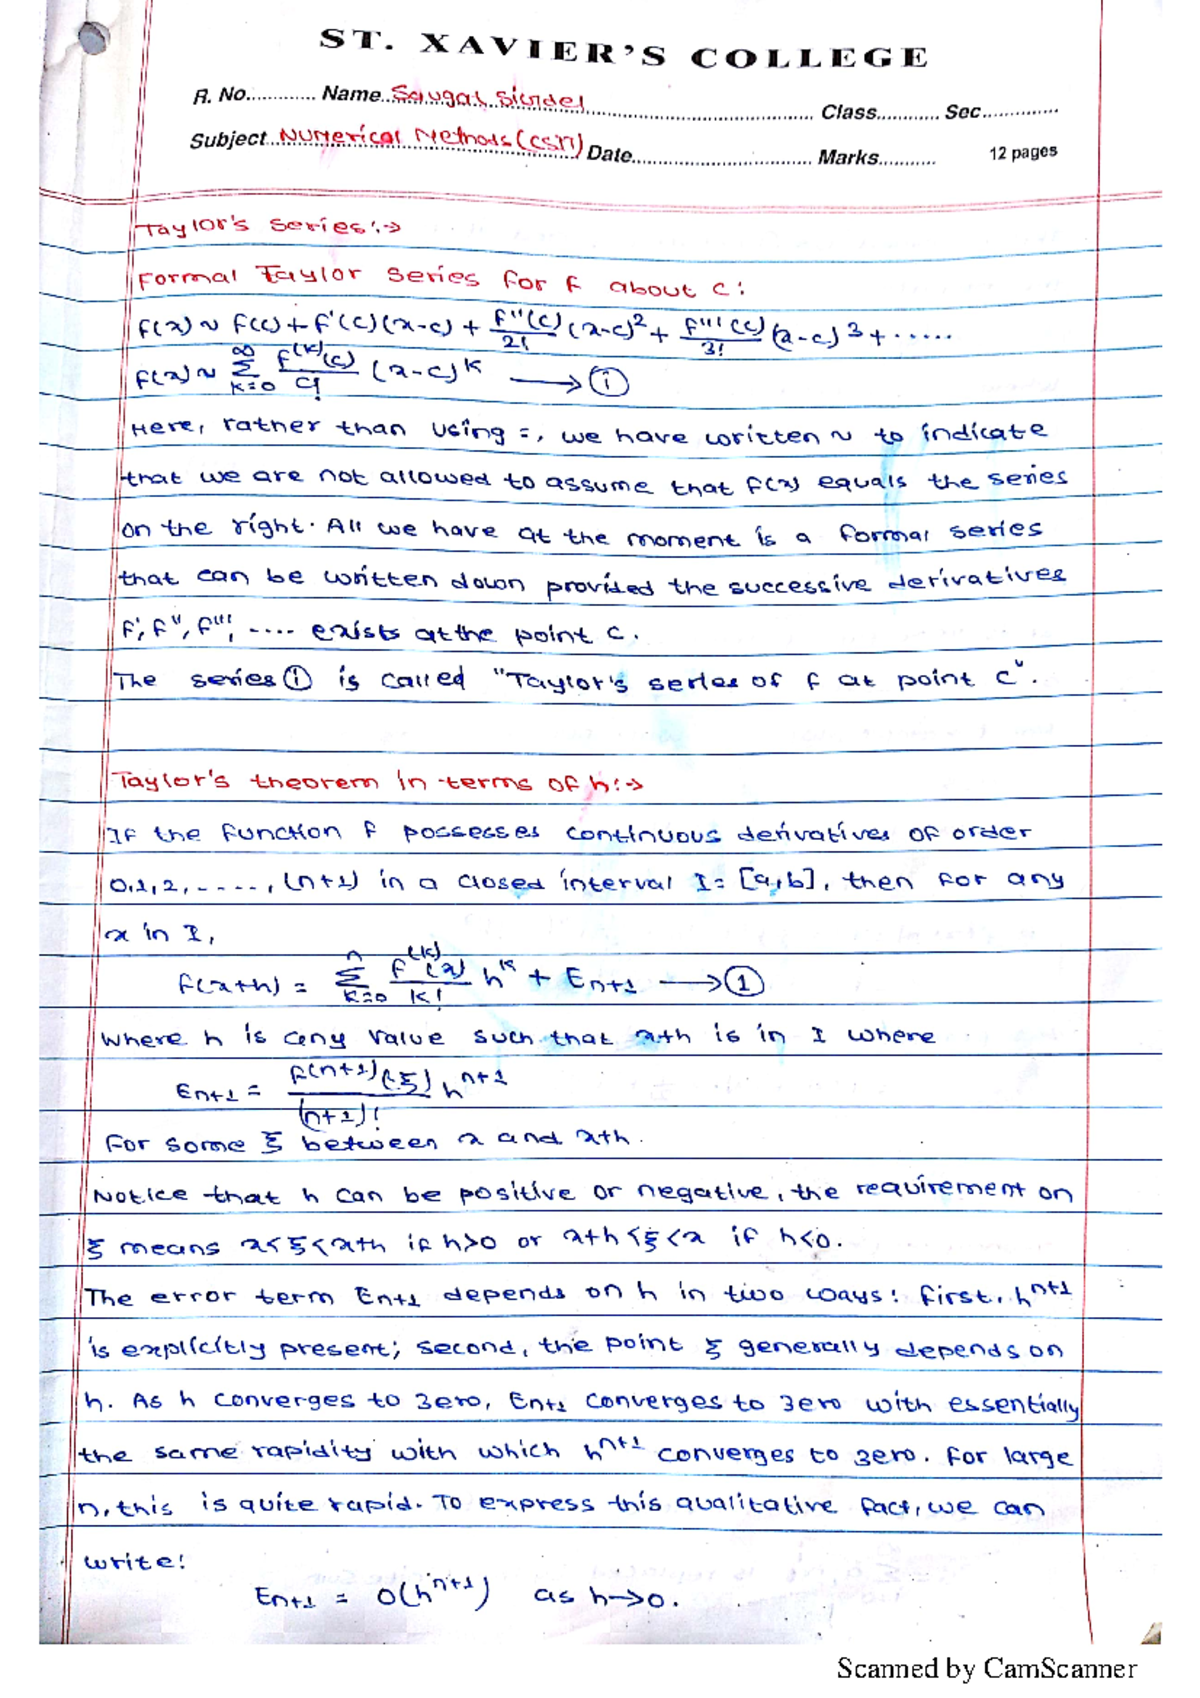 ST. XAVIER'S COLLEGE
R. No............ Name..Saugat Sigdel.................... Class............ Sec..............
Subject..Numerical Methods (CSIT) Date.............................. Marks........... 12 pages
Taylor's series:→
Formal Taylor series for f about c:
f(x) ~ f(c) + f'(c)(x-c) + f''(c)/2! (x-c)² + f'''(c)/3! (x-c)³ + ......
f(x) ~ ∑_{k=0}^{∞} f^(k)(c)/c! (x-c)^k → ①
Here, rather than using =, we have written ~ to indicate
that we are not allowed to assume that f(x) equals the series
on the right. All we have at the moment is a formal series
that can be written down provided the successive derivatives
f', f'', f''', .... exists at the point c.
The series ① is called "Taylor's series of f at point c".
Taylor's theorem in terms of h:→
If the function f possesses continuous derivatives of order
0,1,2, ....., (n+1) in a closed interval I = [a,b], then for any
x in I,
f(x+h) = ∑_{k=0}^{n} f^(k)(x)/k! h^k + E_{n+1} → ①
Where h is any value such that x+h is in I where
E_{n+1} = f^(n+1)(ξ)/(n+1)! h^{n+1}
For some ξ between x and x+h.
Notice that h can be positive or negative, the requirement on
ξ means x<ξ<x+h if h>0 or x+h<ξ<x if h<0.
The error term E_{n+1} depends on h in two ways: first, h^{n+1}
is explicitly present; second, the point ξ generally depends on
h. As h converges to zero, E_{n+1} converges to zero with essentially
the same rapidity with which h^{n+1} converges to zero. For large
n, this is quite rapid. To express this qualitative fact, we can
write:
E_{n+1} = O(h^{n+1}) as h→0.
Scanned by CamScanner